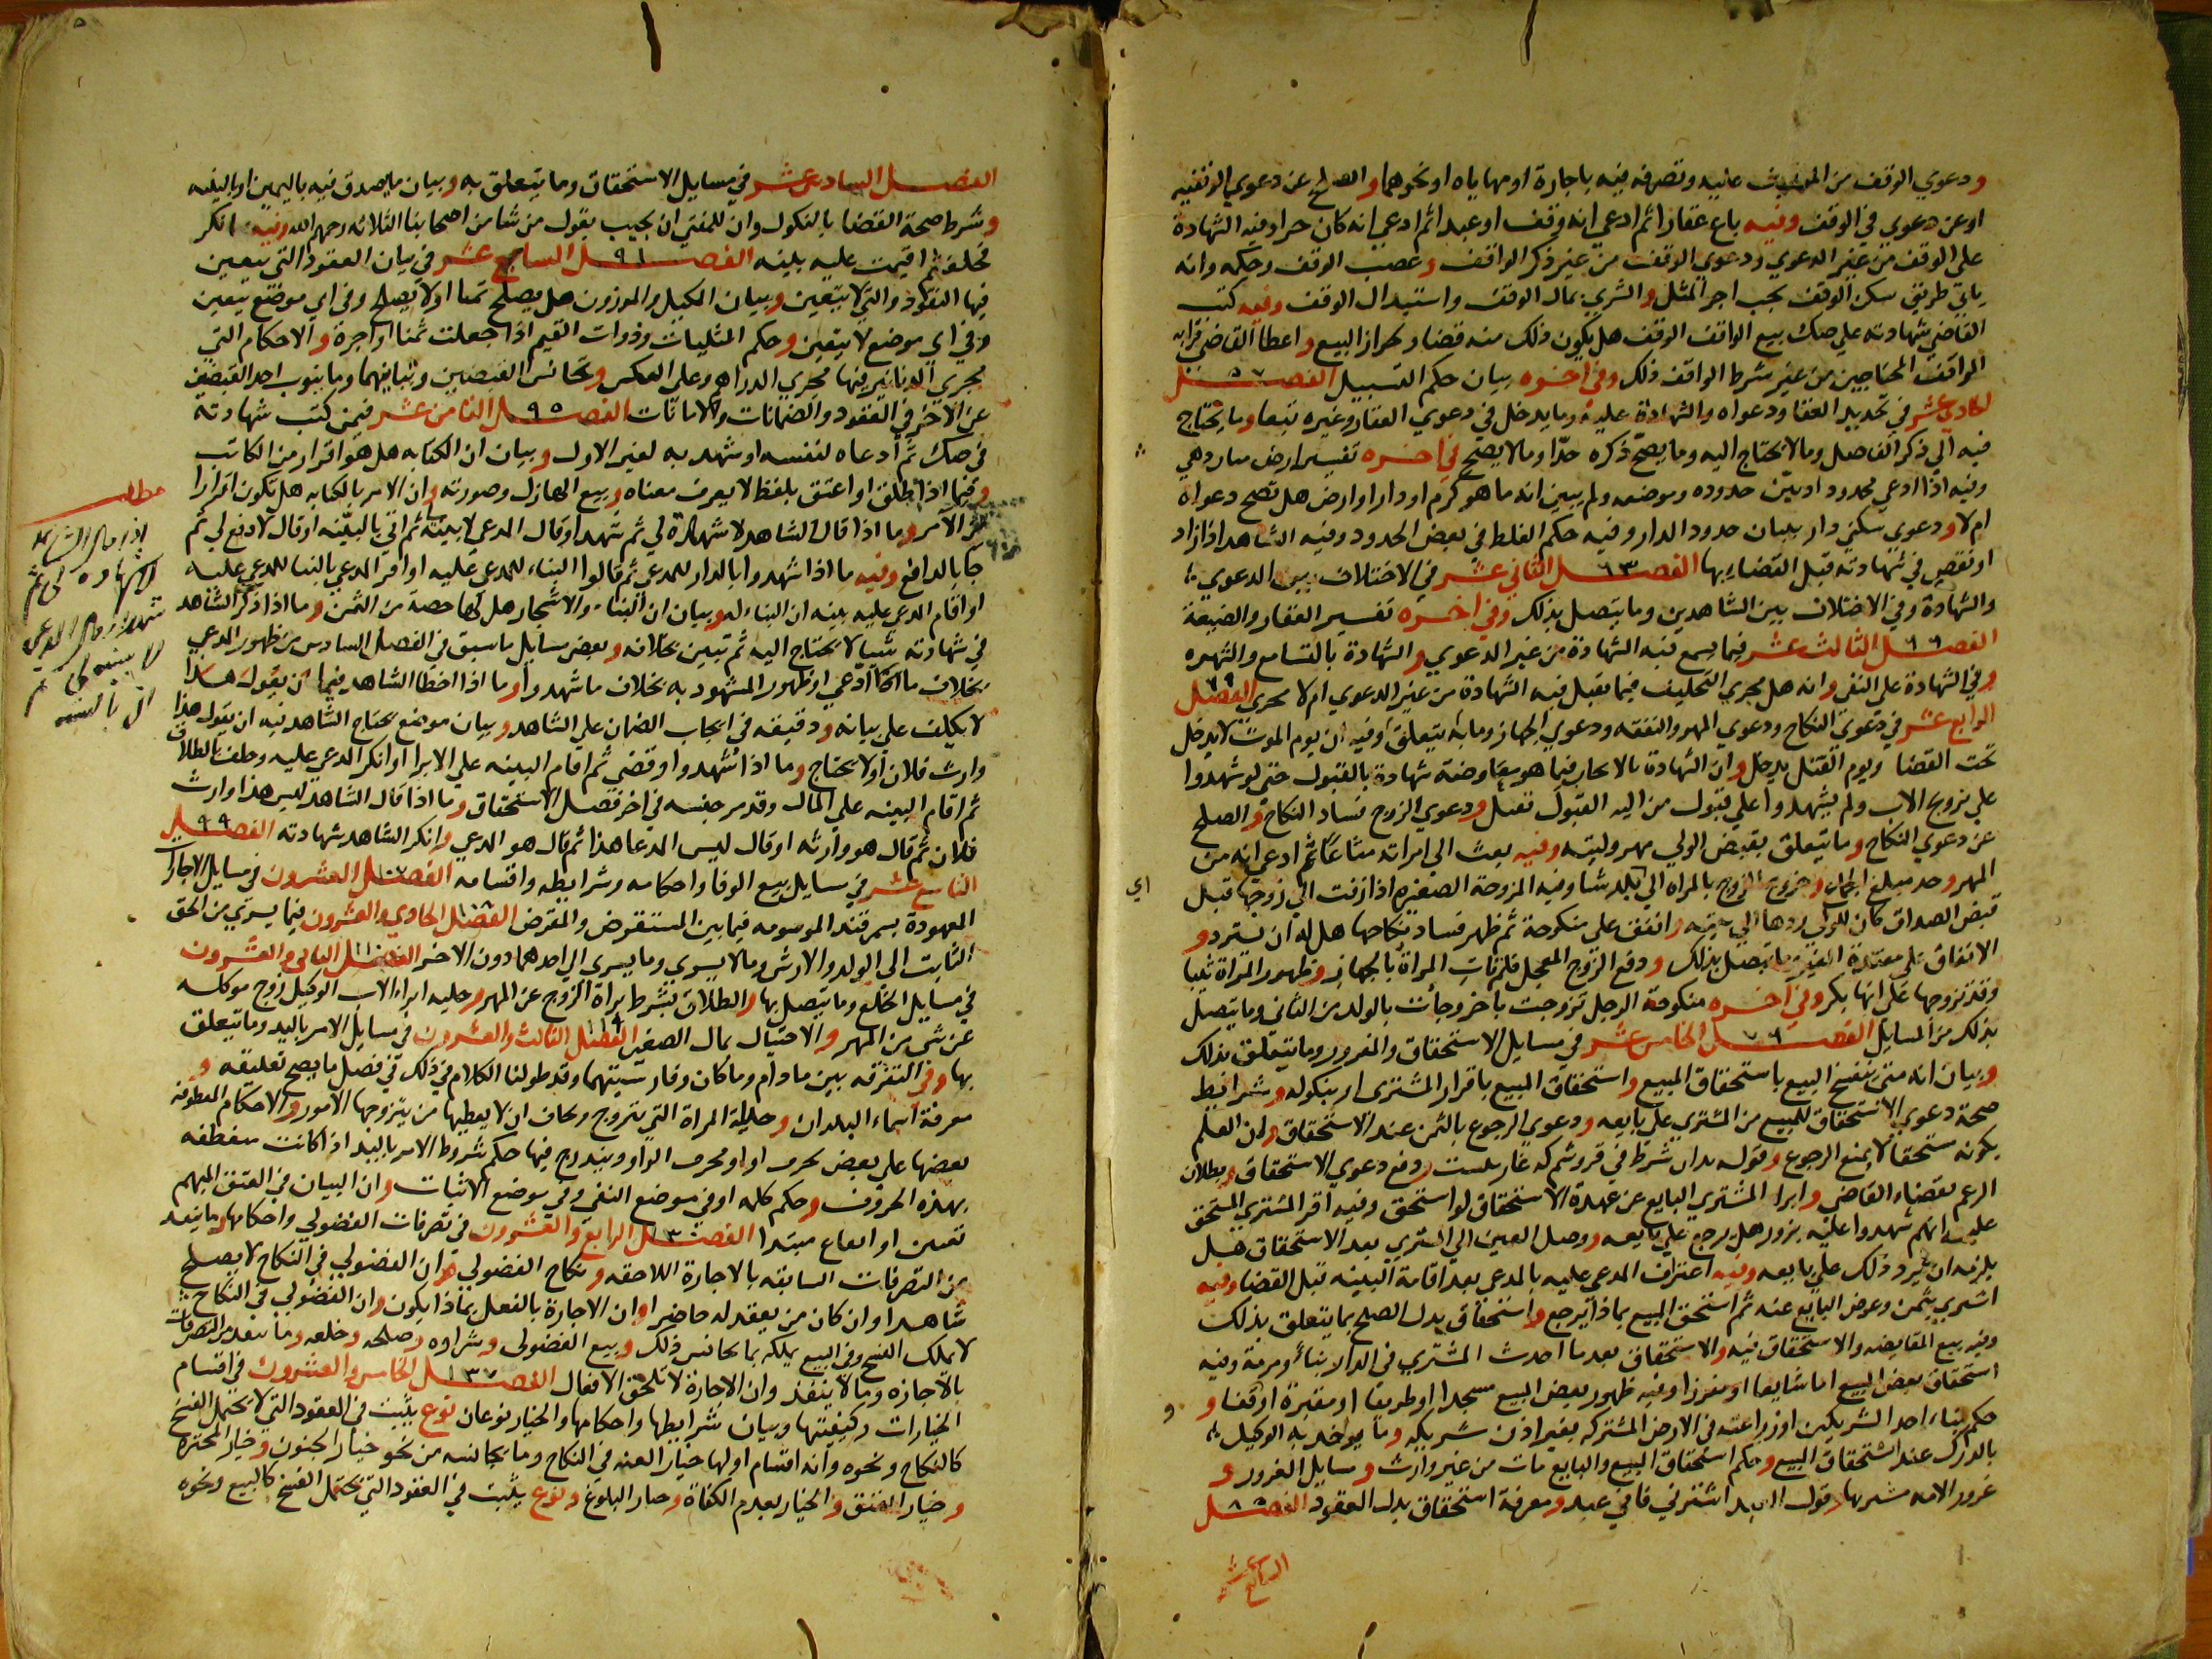 ودعوي الوقف من الموقوف عليه وتصرفه فيه باجارة او مهاياه او نحوهما والصلح عن دعوي الوقفيه
او عن دعوي في الوقف وفيه باع عقارا ثم ادعي انه وقف او عبدا ثم ادعي انه كان حرا وفيه الشهادة
علي الوقف من غير الدعوي ودعوي الوقف من غير ذكر الواقف وغصب الوقف وحكمه وانه
باي طريق سكن الوقف يجب اجر المثل والشري بمال الوقف واستبدال الوقف وفيه كتب
القاضي شهادته علي صك بيع الواقف الوقف هل يكون ذلك منه قضا بجواز البيع واعطا القاضي قرابه
الواقف المحتاجين من غير شرط الواقف ذلك وفي اخره بيان حكم التسبيل الفصل ٥٧
الحادي عشر في تحديد العقار ودعواه والشهادة عليه وما يدخل في دعوي العقار وغيره تبعا وما يحتاج
فيه الي ذكر الفاصل وما لا يحتاج اليه وما يصح ذكره حدا وما لا يصح في اخره تفسير ارض ميان دهي
وفيه اذا ادعي محدودا وبين حدوده وموضعه ولم يبين انه ما هو كرم او دار او ارض هل تصح دعواه
ام لا ودعوي سكني دار ببيان حدود الدار وفيه حكم الغلط في بعض الحدود وفيه الشاهد اذا زاد
او نقص في شهادته قبل القضا بها الفصل ٦٣ الثاني عشر في الاختلاف بين الدعوي
والشهادة وفي الاختلاف بين الشاهدين وما يتصل بذلك وفي اخره تفسير العقار والضيعة
الفصل ٦٦ الثالث عشر فيما يسمع فيه الشهادة من غير الدعوي والشهادة بالتسامع والشهره
وفي الشهادة علي النفي وانه هل يجري التحليف فيما يقبل فيه الشهادة من غير الدعوي ام لا يجري الفصل ٦٩
الرابع عشر في دعوي النكاح ودعوي المهر والنفقه ودعوي الجهاز وما به يتعلق وفيه ان يوم الموت لا يدخل
تحت القضا ويوم القتل يدخل وان الشهادة بالايجاب فيما هو معاوضة شهادة بالقبول حتي لو شهدوا
علي تزويج الاب ولم يشهدوا علي قبول من اليه القبول تقبل ودعوي الزوج فساد النكاح والصلح
عن دعوي النكاح وما يتعلق بقبض الولي مهر وليته وفيه بعث الي امراته متاعا ثم ادعي انه من
المهر وحد مبلغ الجهاز وخروج الزوج بالمراه الي بلد شا وفيه المزوجة الصغيره اذا زفت الي زوجها قبل
قبض الصداق كان للولي ردها الي بيته وانفق علي منكوحة ثم ظهر فساد نكاحها هل له ان يسترد و
الانفاق علي معتدة الغير وما يتصل بذلك ودفع الزوج المعجل فلم تات المراة بالجهاز وظهور المراة ثيبا
وقد تزوجها علي انها بكر وفي اخره منكوحة الرجل تزوجت باخر وجاءت بالولد من الثاني وما يتصل
بذلك من المسايل الفصل ٧٦ الخامس عشر في مسايل الاستحقاق والغرور وما يتعلق بذلك
وبيان انه متي ينفسخ البيع باستحقاق المبيع واستحقاق المبيع باقرار المشتري او بنكوله وشرايط
صحة دعوي الاستحقاق للمبيع من المشتري علي بايعه ودعوي الرجوع بالثمن عند الاستحقاق وان العلم
بكونه مستحقا لا يمنع الرجوع وقوله بدان شرط في فروشم كه غاريست ودفع دعوي الاستحقاق وبطلان
الرعم بقضاء القاضي وابرا المشتري البايع عن عهدة الاستحقاق لو استحق وفيه اقر المشتري للمستحق
عليه انهم شهدوا عليه بزور هل يرجع علي بايعه ووصل العين الي المشتري بعد الاستحقاق هل
يلزمه ان يرد ذلك علي بايعه وفيه اعتراف المدعي عليه بالمدعي بعد اقامة البينه قبل القضا وفيه
اشتري بثمن وعوض البايع عنه ثم استحق المبيع بماذا يرجع واستحقاق بدل الصلح بما يتعلق بذلك
وفيه بيع المقايضه والاستحقاق فيه والاستحقاق بعد ما احدث المشتري في الدار بناء ومرمة وفيه
استحقاق بعض المبيع اما شايعا او مفرزا وفيه ظهور بعض المبيع مسجدا او طريقا او مقبرة او وقفا و
حكم بناء احد الشريكين او زراعته في الارض المشتركه بغير اذن شريكه وما يواخذ به الوكيل
بالدرك عند استحقاق المبيع وحكم استحقاق المبيع والبايع مات من غير وارث ومسايل الغرور و
غرور الامه مشتريها وقول العبد اشترني فاني عبد ومعرفة استحقاق بدل العقود الفصل ٨٥
السادس عشر
اي
الفصل السادس عشر في مسايل الاستحقاق وما يتعلق به وبيان ما يصدق فيه باليمين او بالبينه
وشرط صحة القضا بالنكول وان للمفتي ان يجيب بقول من شا من اصحابنا الثلاثه رحمهم الله وفيه انكر
فحلف ثم اقيمت عليه بينه الفصل ٩١ السابع عشر في بيان العقود التي يتعين
فيها النقود والتي لا يتعين وبيان المكيل والموزون هل يصلح ثمنا او لا يصلح وفي اي موضع يتعين
وفي اي موضع لا يتعين وحكم المثليات وذوات القيم اذا جعلت ثمنا او اجرة والاحكام التي
يجري الدنانير فيها مجري الدراهم وعلي العكس وتجانس القبضين وتباينهما وما ينوب احد القبضين
عن الاخر في العقود والضمانات والامانات الفصل ٩٥ الثامن عشر فيمن كتب شهادته
في صك ثم ادعاه لنفسه او شهد به لغير الاول وبيان ان الكتابه هل هو اقرار من الكاتب
وفيما اذا طلق او اعتق بلفظ لا يعرف معناه وبيع الهازل وصورته وان الامر بالكتابه هل يكون اقرارا
من الامر وما اذا قال الشاهد لا شهادة لي ثم شهد او قال المدعي لا بينة ثم اتي بالبينه او قال لا دفع لي ثم
جا بالدافع وفيه ما اذا شهدوا بالدار للمدعي ثم قالوا البناء للمدعي عليه او اقر المدعي بالبنا للمدعي عليه
او اقام المدعي عليه بينه ان البناء له وبيان ان البناء والاشجار هل لها حصة من الثمن وما اذا ذكر الشاهد
في شهادته شيا لا يحتاج اليه ثم تبين بخلافه وبعض مسايل ما سبق في الفصل السادس من ظهور المدعي
بخلاف ما ادعي او ظهور المشهود به بخلاف ما شهدوا وما اذا اخطا الشاهد فيما ان يقول هذا
لا يكلف علي بيانه ودقيقه في ايجاب الضمان علي الشاهد وبيان موضع يحتاج الشاهد فيه ان يقول هذا
وارث فلان او لا يحتاج وما اذا شهدوا وقضي ثم اقام البينه علي الابرا او انكر المدعي عليه وحلف بالطلاق
ثم اقام البينه علي المال وقد مر جنسه في اخر فصل الاستحقاق وما اذا قال الشاهد ليس هذا وارث
فلان ثم قال هو وارثه او قال ليس المدعا هذا ثم قال هو المدعي وانكر الشاهد شهادته الفصل ٩٩
التاسع عشر في مسايل بيع الوفا واحكامه وشرايطه واقسامه الفصل العشرون في مسايل الاجارات
المعهودة بسمرقند الموسومه فيما بين المستقرض والمقرض الفصل الحادي والعشرون فيما يسري من الحق
الثابت الي الولد والارش وما لا يسري وما يسري الي احدهما دون الاخر الفصل الثاني والعشرون
في مسايل الخلع وما يتصل بها والطلاق بشرط براة الزوج عن المهر وحليه ابراء الاب الوكيل زوج موكله
عن شي من المهر والاحتيال بمال الصغير الفصل الثالث والعشرون في مسايل الامر باليد وما يتعلق
بها وفي التفرقه بين مادام وما كان وفارسيتهما وقد طولنا الكلام في ذلك في فصل ما يصح تعليقه و
معرفة اسماء البلدان وحيلة المراة التي يتزوج وتخاف ان لا يعطيها من يتزوجها الامور والاحكام المعطوفه
بعضها علي بعض بحرف او او بحرف الواو ويندرج فيها حكم شروط الامر باليد اذا كانت منعطفه
بهذه الحروف وحكم كلمه او في موضع النفي وفي موضع الاثبات وان البيان في العتق المبهم
تعيين او ايقاع مبتدا الفصل ١٣٠ الرابع والعشرون في تصرفات الفضولي واحكامها وما ينفذ
من التصرفات السابقه بالاجازة اللاحقه ونكاح الفضولي وان الفضولي في النكاح لا يصلح
شاهدا وان كان من يعقد له حاضرا وان الاجازة بالفعل بماذا يكون وان الفضولي في النكاح
لا يملك الفسخ وفي البيع يملكه بما يجانس ذلك وبيع الفضولي وشراوه وصلحه وخلعه وما ينفذ من التصرفات
بالاجازه وما لا ينفذ وان الاجازة لا تلحق الافعال الفصل ١٣٧ الخامس والعشرون في اقسام
الخيارات وكيفيتها وبيان شرايطها واحكامها والخيار نوعان نوع يثبت في العقود التي لا يحتمل الفسخ
كالنكاح ونحوه وانه اقسام اولها خيار العنه في النكاح وما يجانسه من نحو خيار الجنون وخيار المخيره
وخيار العتق والخيار بعدم الكفاة وخيار البلوغ ونوع يثبت في العقود التي يحتمل الفسخ كالبيع ونحوه
مطلب
اذا قال الشاهد
لا شهادة لي ثم
شهد او قال المدعي
لا بينة لي ثم
اتي بالبينه